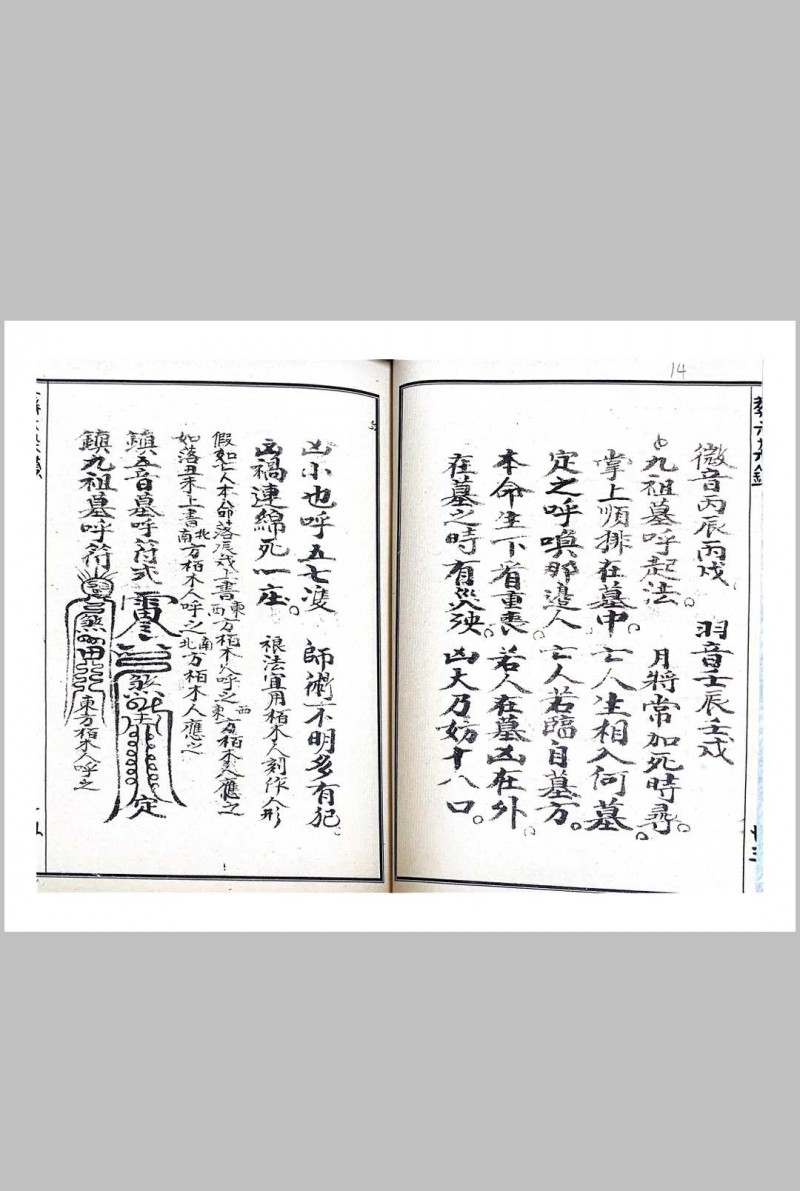 14
徵音丙辰丙戌 羽音壬辰壬戌
九祖墓呼起法 月將常加死時尋
掌上順排在墓中 亡人生相入何墓
定之呼嗔那邉人 亡人若臨自墓方
本命生下省重喪 若人在墓凶在外
在墓之時有災殃 凶大乃妨十八口
凶小也呼五七渡 師術不明多有犯
凶禍連綿死一庄 禳法宜用栢木人刻作人形
假如亡人本命落辰戌上書東西方栢木人呼之西東方栢木人應之
如落丑未上書北南方栢木人呼之南北方栢木人應之
鎮五音墓呼符式
鎮九祖墓呼符 東方栢木人呼之